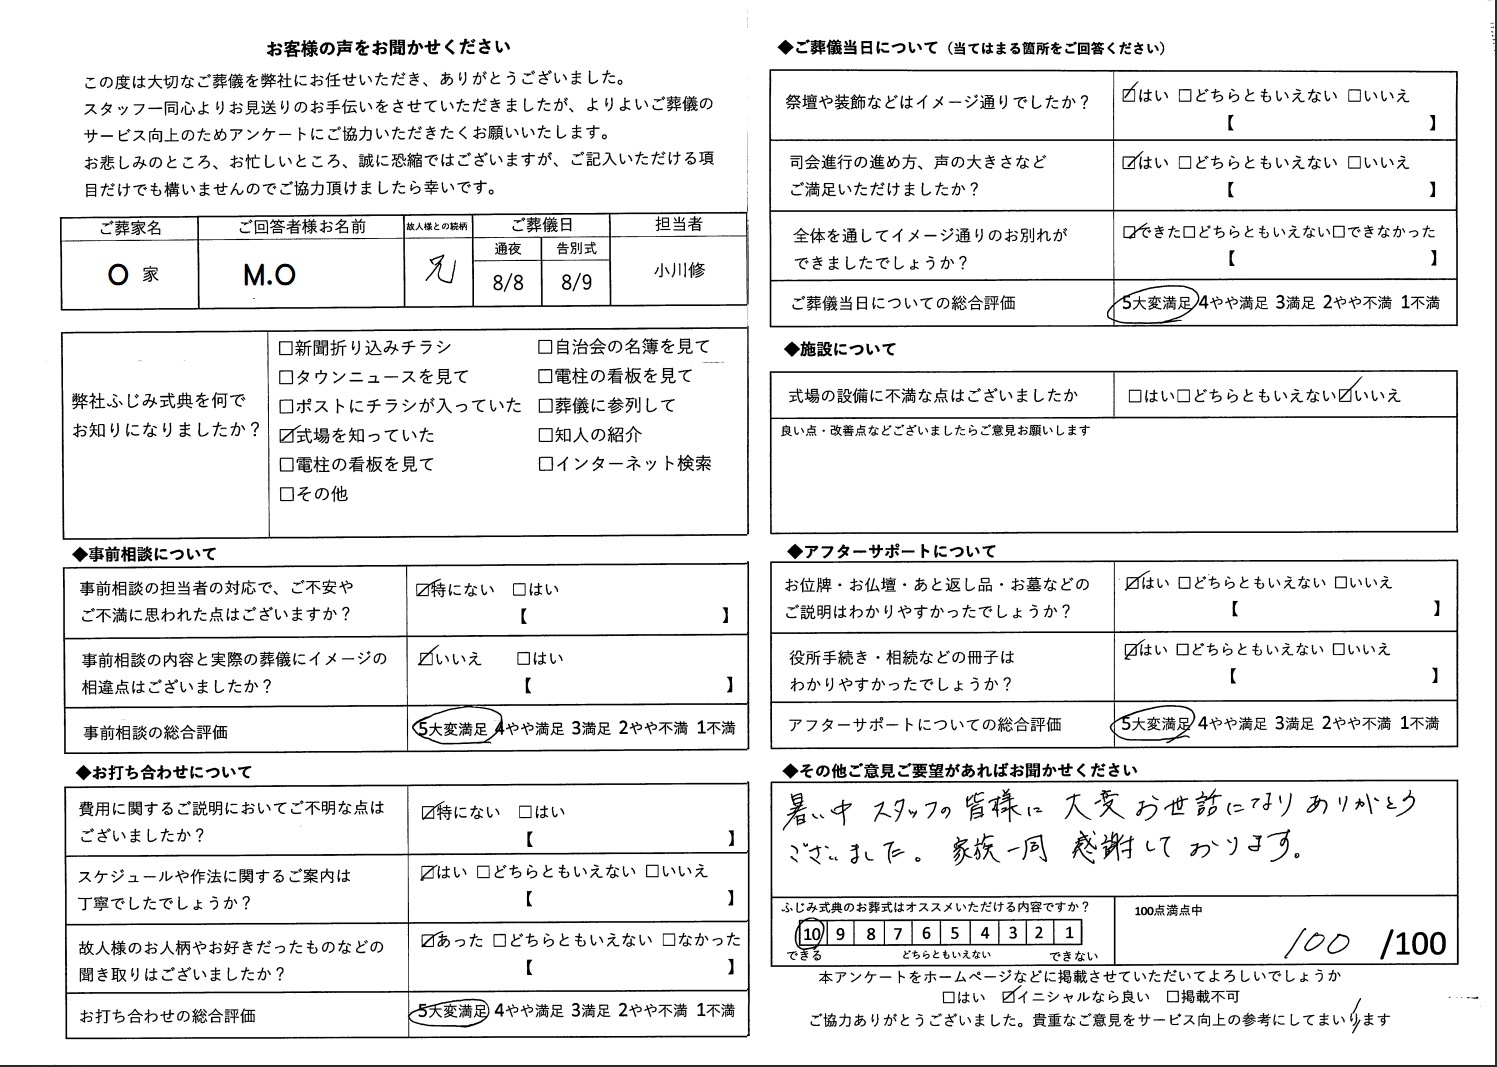 お客様の声をお聞かせください
この度は大切なご葬儀を弊社にお任せいただき、ありがとうございました。
スタッフ一同心よりお見送りのお手伝いをさせていただきましたが、よりよいご葬儀の
サービス向上のためアンケートにご協力いただきたくお願いいたします。
お悲しみのところ、お忙しいところ、誠に恐縮ではございますが、ご記入いただける項
目だけでも構いませんのでご協力頂けましたら幸いです。
ご葬家名 ご回答者様お名前 故人様との続柄 ご葬儀日 担当者
通夜 告別式
O 家 M.O 兄 8/8 8/9 小川修
弊社ふじみ式典を何で
お知りになりましたか？
☐新聞折り込みチラシ ☐自治会の名簿を見て
☐タウンニュースを見て ☐電柱の看板を見て
☐ポストにチラシが入っていた ☐葬儀に参列して
☑式場を知っていた ☐知人の紹介
☐電柱の看板を見て ☐インターネット検索
☐その他
◆事前相談について
事前相談の担当者の対応で、ご不安や
ご不満に思われた点はございますか？
☑特にない ☐はい
【 】
事前相談の内容と実際の葬儀にイメージの
相違点はございましたか？
☑いいえ ☐はい
【 】
事前相談の総合評価 5大変満足 4やや満足 3満足 2やや不満 1不満
◆お打ち合わせについて
費用に関するご説明においてご不明な点は
ございましたか？
☑特にない ☐はい
【 】
スケジュールや作法に関するご案内は
丁寧でしたでしょうか？
☑はい ☐どちらともいえない ☐いいえ
【 】
故人様のお人柄やお好きだったものなどの
聞き取りはございましたか？
☑あった ☐どちらともいえない ☐なかった
【 】
お打ち合わせの総合評価 5大変満足 4やや満足 3満足 2やや不満 1不満
◆ご葬儀当日について（当てはまる箇所をご回答ください）
祭壇や装飾などはイメージ通りでしたか？
☑はい ☐どちらともいえない ☐いいえ
【 】
司会進行の進め方、声の大きさなど
ご満足いただけましたか？
☑はい ☐どちらともいえない ☐いいえ
【 】
全体を通してイメージ通りのお別れが
できましたでしょうか？
☑できた☐どちらともいえない☐できなかった
【 】
ご葬儀当日についての総合評価 5大変満足 4やや満足 3満足 2やや不満 1不満
◆施設について
式場の設備に不満な点はございましたか ☐はい☐どちらともいえない☑いいえ
良い点・改善点などございましたらご意見お願いします
◆アフターサポートについて
お位牌・お仏壇・あと返し品・お墓などの
ご説明はわかりやすかったでしょうか？
☑はい ☐どちらともいえない ☐いいえ
【 】
役所手続き・相続などの冊子は
わかりやすかったでしょうか？
☑はい ☐どちらともいえない ☐いいえ
【 】
アフターサポートについての総合評価 5大変満足 4やや満足 3満足 2やや不満 1不満
◆その他ご意見ご要望があればお聞かせください
暑い中 スタッフの皆様に 大変お世話になり ありがとう
ございました。家族一同 感謝しております。
ふじみ式典のお葬式はオススメいただける内容ですか？
10 9 8 7 6 5 4 3 2 1
できる どちらともいえない できない
100点満点中
100 /100
本アンケートをホームページなどに掲載させていただいてよろしいでしょうか
☐はい ☑イニシャルなら良い ☐掲載不可
ご協力ありがとうございました。貴重なご意見をサービス向上の参考にしてまいります